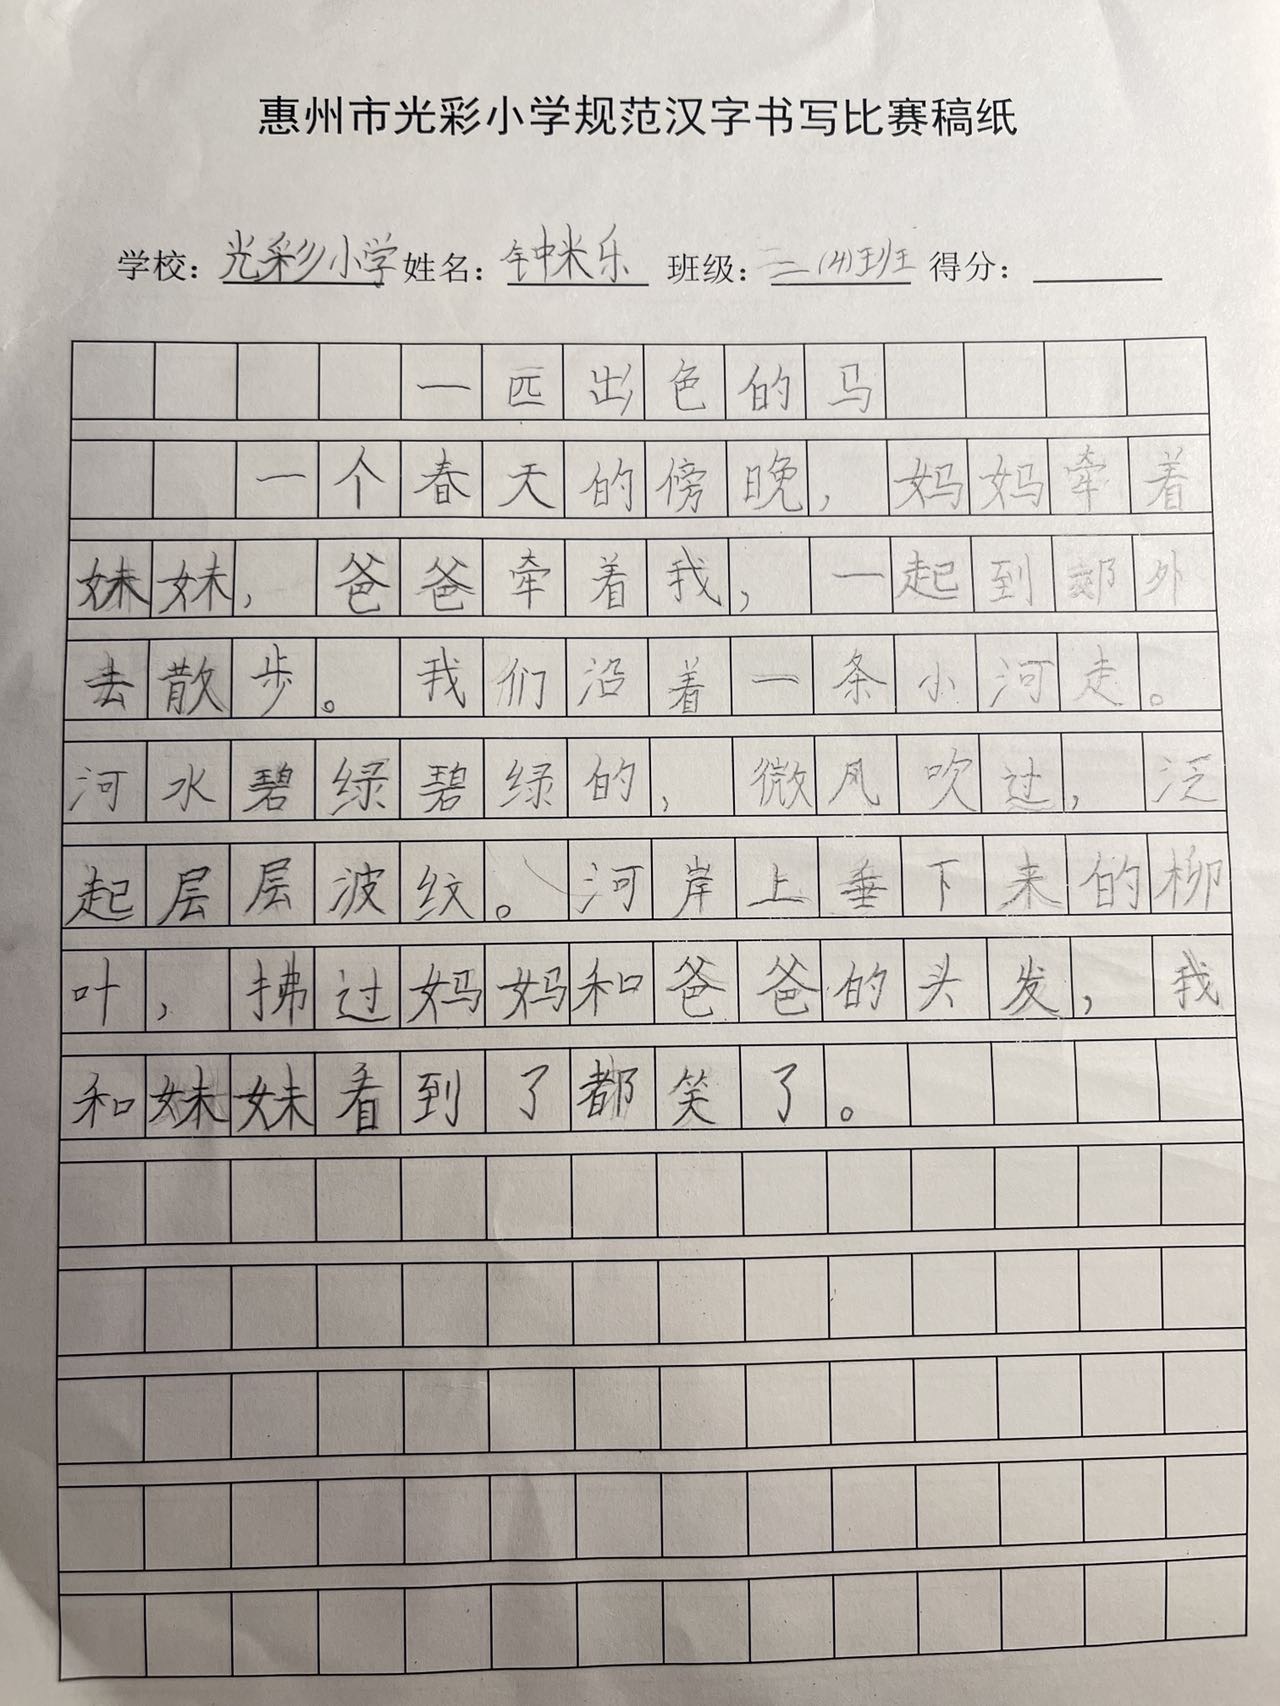 惠州市光彩小学规范汉字书写比赛稿纸
学校：光彩小学 姓名：钟米乐 班级：二（4）班 得分：
一匹出色的马
一个春天的傍晚，妈妈牵着
妹妹，爸爸牵着我，一起到郊外
去散步。我们沿着一条小河走。
河水碧绿碧绿的，微风吹过，泛
起层层波纹。河岸上垂下来的柳
叶，拂过妈妈和爸爸的头发，我
和妹妹看到了都笑了。